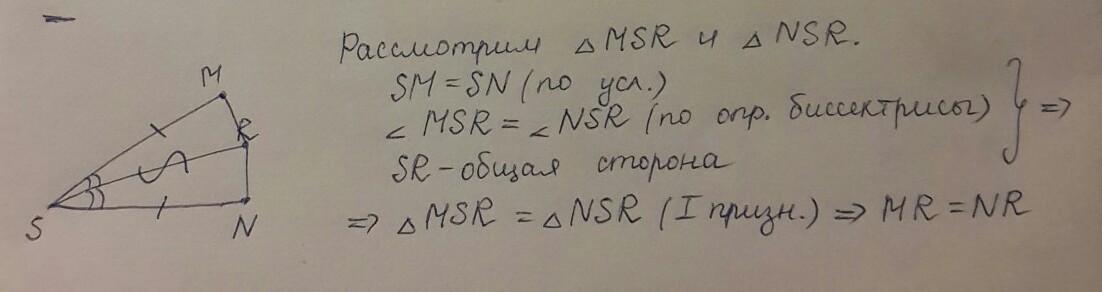 Рассмотрим △MSR и △NSR.
SM = SN (по усл.)
∠ MSR = ∠ NSR (по опр. биссектрисы) } =>
SR - общая сторона
=> △MSR = △NSR (I призн.) => MR = NR
M
R
S
N